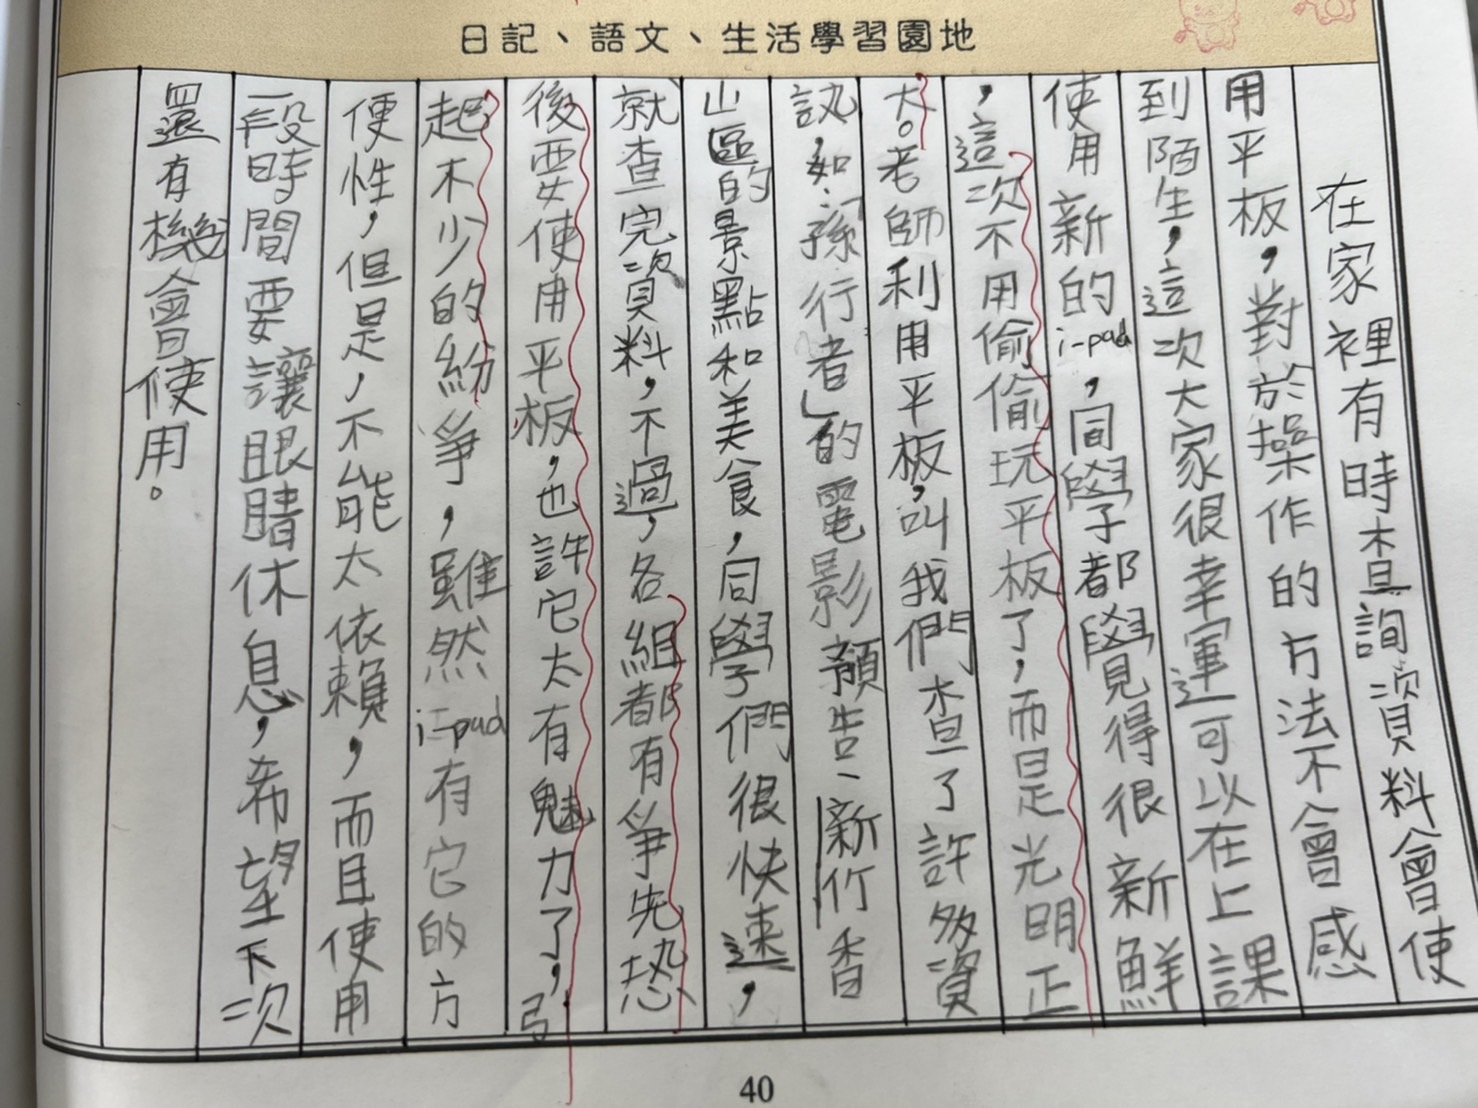 日記、語文、生活學習園地
在家裡有時查詢資料會使
用平板，對於操作的方法不會感
到陌生，這次大家很幸運可以在上課
使用新的i-pad，同學都覺得很新鮮
，這次不用偷偷玩平板了，而是光明正
大。老師利用平板，叫我們查了許多資
訊，如：「孫行者」的電影預告、新竹香
山區的景點和美食，同學們很快速，
就查完資料，不過，各組都有爭先恐
後要使用平板，也許它太有魅力了，引
起不少的紛爭，雖然i-pad有它的方
便性，但是，不能太依賴，而且使用
一段時間要讓眼睛休息，希望下次
還有機會使用。
40